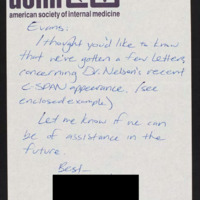 asim
american society of internal medicine
Evans:
I thought you'd like to know
that we've gotten a few letters
concerning Dr. Nelson's recent
C-SPAN appearance. (see
enclosed example)
Let me know if we can
be of assistance in the
future.
Best—